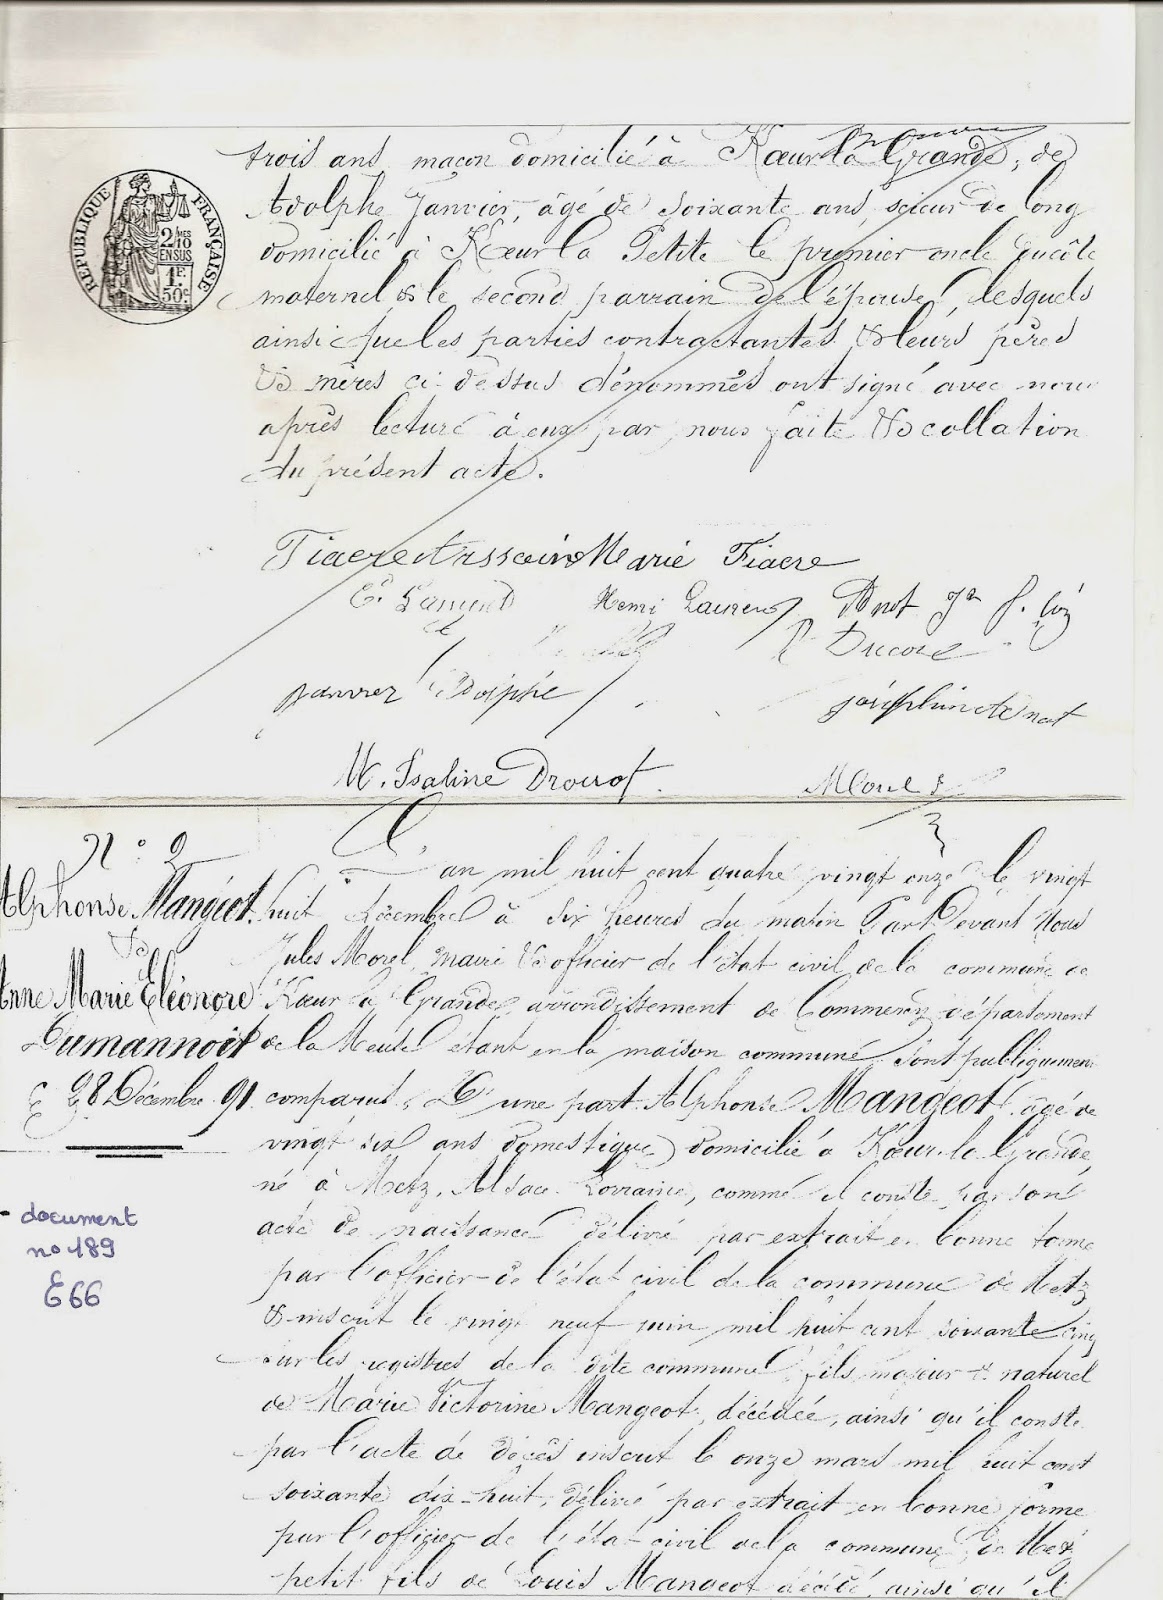 trois ans maçon domicilié à Kœur la Grande, de
Adolphe Janvier, âgé de soixante ans, scieur de long
domicilié à Kœur la Petite le premier oncle du côté
maternel & le second parrain de l'épouse, lesquels
ainsi que les parties contractantes & leurs pères
& mères ci-dessus dénommés ont signé avec nous
après lecture à eux par nous faite & collation
du présent acte.
RÉPUBLIQUE FRANÇAISE
2/10MES
EN SUS
1F.
50c
Marie Fiacre
Henri Laurent
Janvier Adolphe
M. Isaline Drouot
N° 2
Alphonse Mangeot
&
Anne Marie Eléonore
Dumannoit
28 Décembre 91
document
no 189
E66
L'an mil huit cent quatre vingt onze le vingt
huit Décembre à six heures du matin Pardevant Nous
Jules Morel, maire & officier de l'état civil de la commune de
Kœur la Grande, arrondissement de Commercy département
de la Meuse étant en la maison commune, sont publiquement
comparus, D'une part Alphonse Mangeot âgé de
vingt six ans domestique domicilié à Kœur la Grande,
né à Metz, Alsace Lorraine, comme il conste par son
acte de naissance délivré par extrait en bonne forme
par l'officier de l'état civil de la commune de Metz
& inscrit le vingt neuf juin mil huit cent soixante cinq
sur les registres de la dite commune, fils majeur & naturel
de Marie Victorine Mangeot, décédée, ainsi qu'il conste
par l'acte de décès inscrit le onze mars mil huit cent
soixante dix-huit, délivré par extrait en bonne forme
par l'officier de l'état civil de la commune de Metz
petit fils de Louis Mangeot décédé, ainsi qu'il